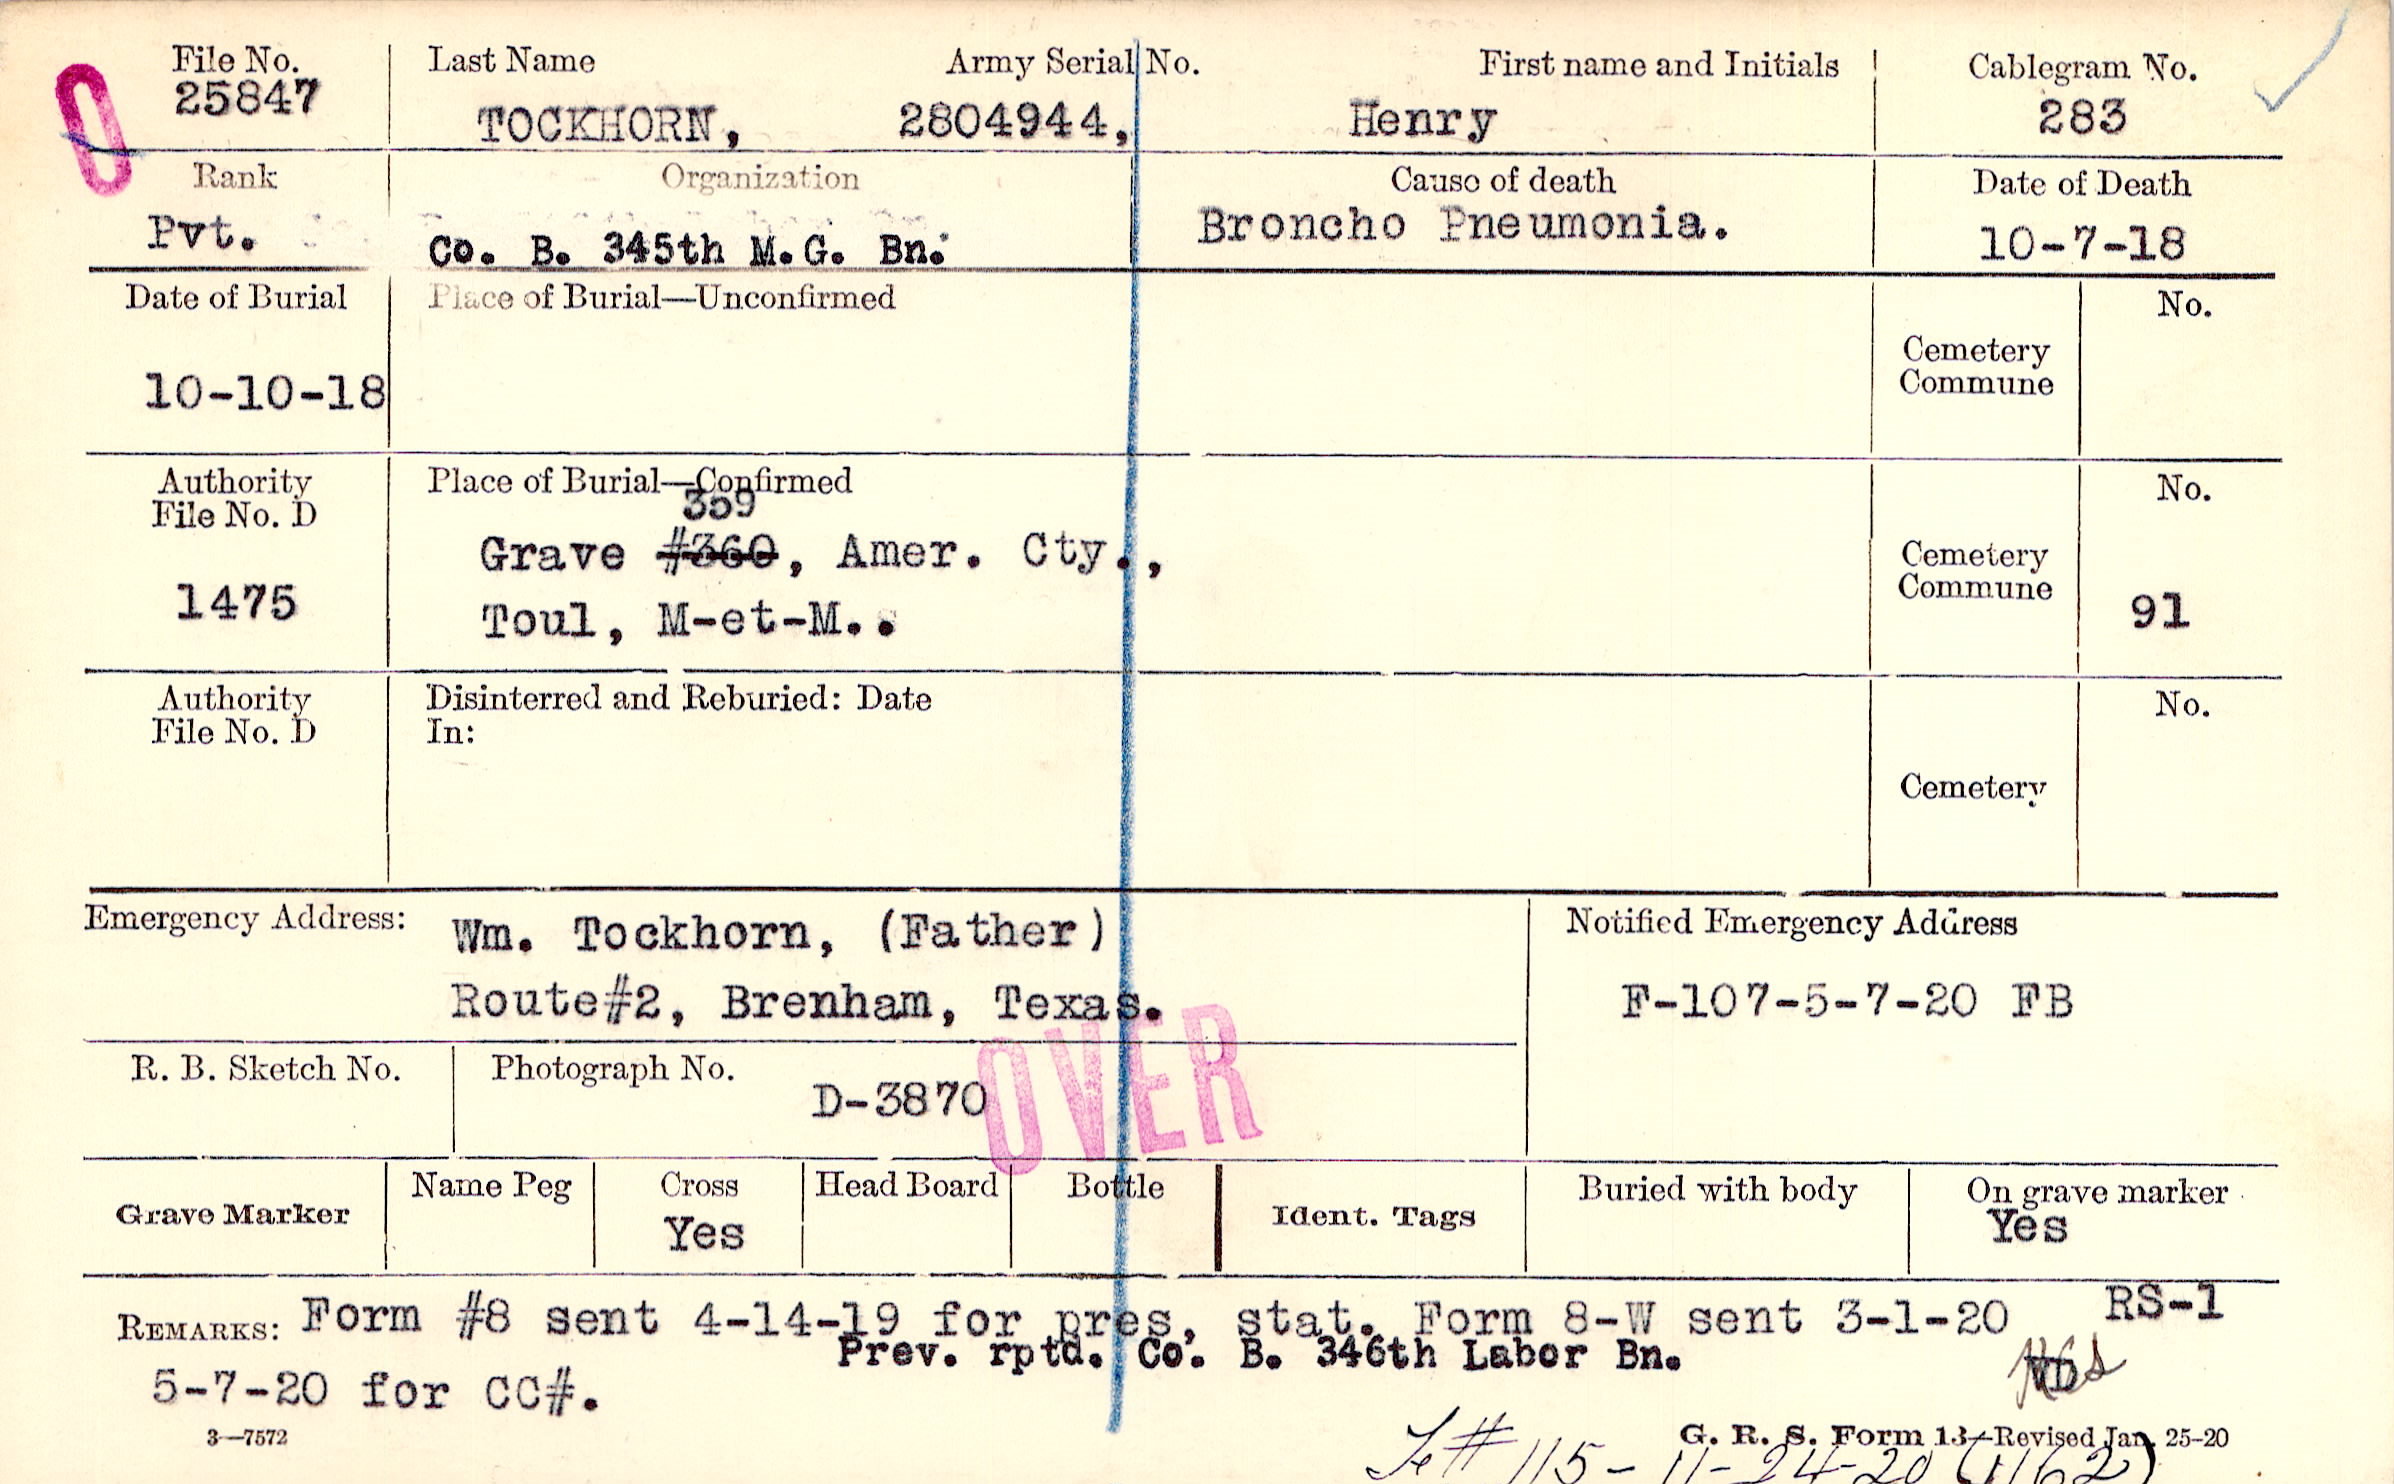 File No. Last Name Army Serial No. First name and Initials Cablegram No.
25847 TOCKHORN, 2804944, Henry 283
Rank Organization Cause of death Date of Death
Pvt. Co. B. 345th M.G. Bn. Broncho Pneumonia. 10-7-18
Date of Burial Place of Burial—Unconfirmed No.
Cemetery
Commune
10-10-18
Authority Place of Burial—Confirmed No.
File No. D
359
Grave #360, Amer. Cty., Cemetery
Commune
1475 Toul, M-et-M.. 91
Authority Disinterred and Reburied: Date No.
File No. D In:
Cemetery
Emergency Address: Wm. Tockhorn, (Father) Notified Emergency Address
Route#2, Brenham, Texas. F-107-5-7-20 FB
OVER
R. B. Sketch No. Photograph No. D-3870
Grave Marker Name Peg Cross Head Board Bottle Ident. Tags Buried with body On grave marker
Yes Yes
REMARKS: Form #8 sent 4-14-19 for pres. stat. Form 8-W sent 3-1-20 RS-1
Prev. rptd. Co. B. 346th Labor Bn.
5-7-20 for CC#.
3—7572 G. R. S. Form 13—Revised Jan. 25-20
# 115 - 11-24-20 (1162)